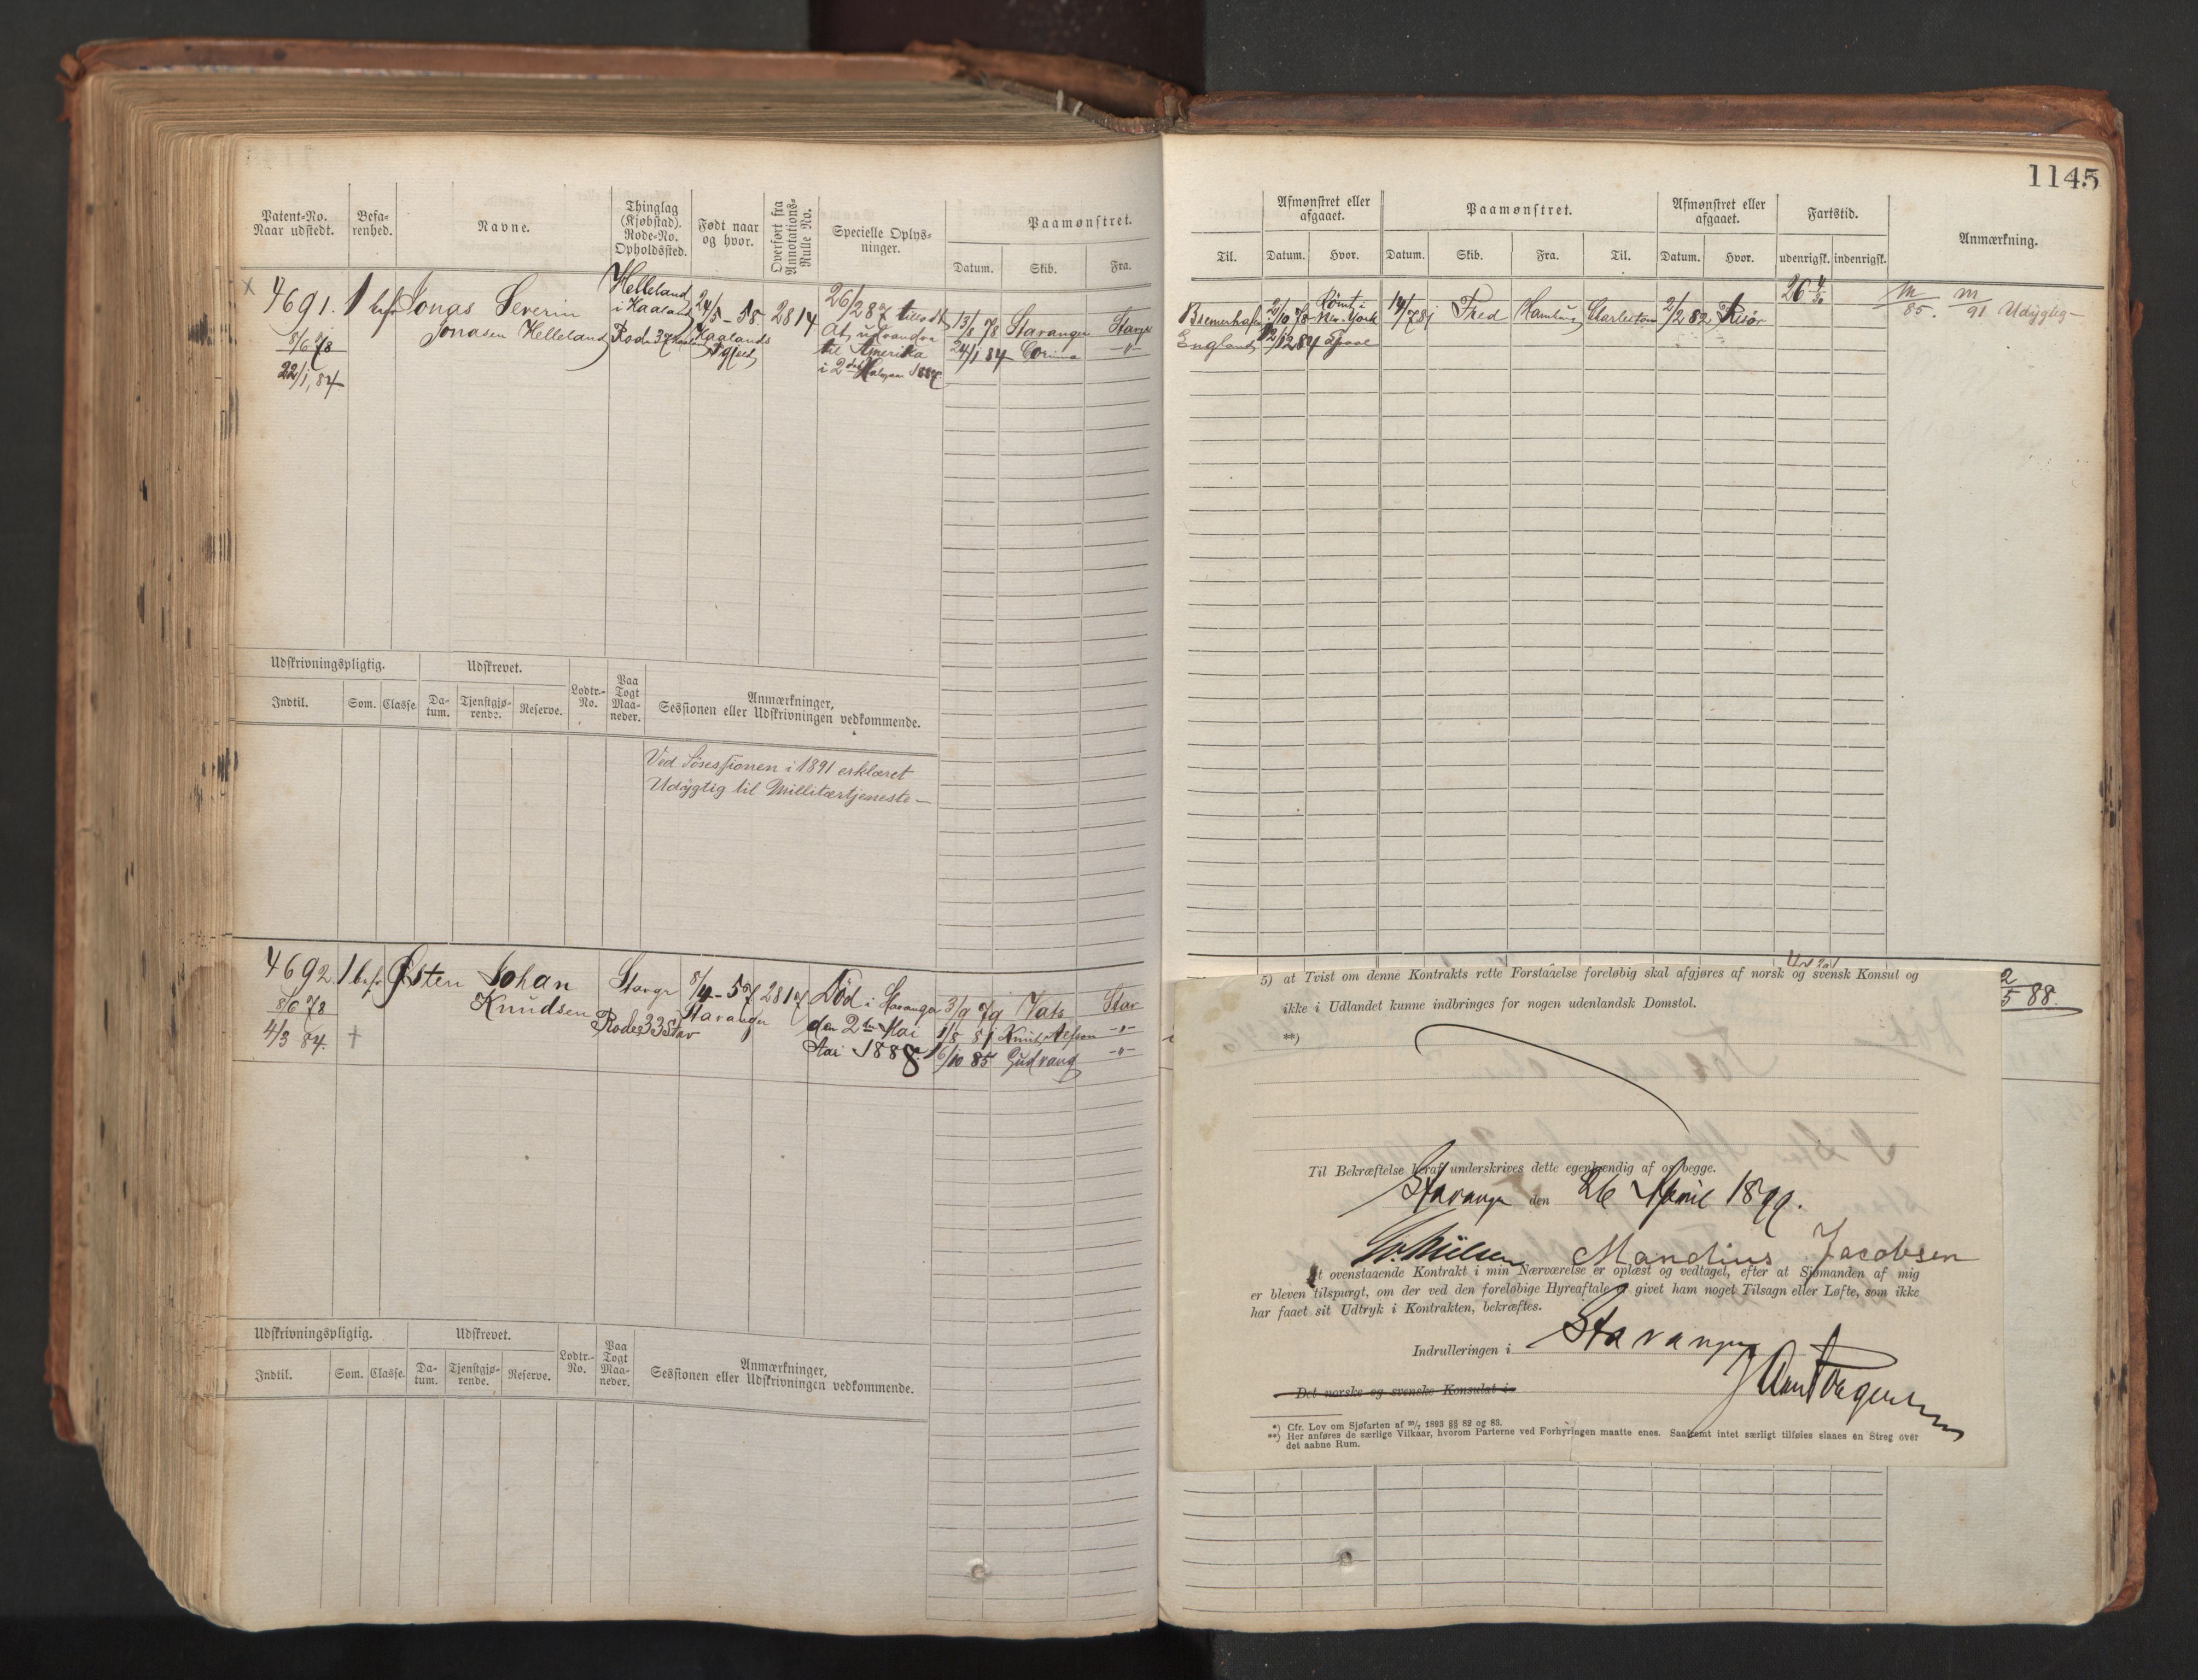 1145
Patent-No.
Naar udstedt.
Befa-
renhed.
Navne.
Thinglag
(Kjøbstad).
Rode-No.
Opholdssted.
Født naar
og hvor.
Overført fra
Annotations-
Rulle No.
Specielle Oplys-
ninger.
Paamønstret.
Datum. Skib. Fra.
4691. 1 Jonas Severin
Jonasen Helleland
8/6 78
22/1 84
Helleland
i Kaaland
Rode 37
24/5 - 58
Haalands
2814
26/2 87
At udvandre
til Amerika
13/8 78 Stavanger Stavgr
24/1 84 Corinna -"-
Udskrivningspligtig. Udskrevet.
Indtil. Som. Classe. Da-
tum. Tjenstgjø-
rende. Reserve. Lodtr.-
No. Paa
Togt
Maa-
neder. Anmærkninger,
Sessionen eller Udskrivningen vedkommende.
Ved Søsessionen i 1891 erklæret
Udygtig til Millitærtjeneste-
4692 1 Østen Johan
Knudsen
8/6 78
4/3 84.
Stavgr
Rode 33 Stav
8/4 - 57
Stavanger
Død i Stavanger
den 2den Mai
1888.
3/9 79 Vats Stav
1/8 81 -"-
16/10 85 Gudvang -"-
Udskrivningspligtig. Udskrevet.
Indtil. Som. Classe. Da-
tum. Tjenstgjø-
rende. Reserve. Lodtr.-
No. Paa
Togt
Maa-
neder. Anmærkninger,
Sessionen eller Udskrivningen vedkommende.
Afmønstret eller
afgaaet.
Paamønstret.
Afmønstret eller
afgaaet.
Fartstid.
Anmærkning.
Til. Datum. Hvor. Datum. Skib. Fra. Til. Datum. Hvor. udenrigsk. indenrigsk.
Bremerhafen 2/10 78 Rømt i
New York Fred Hamburg Charleston 2/2 82 Risør
26 4/30
England 12/12 84
85. 91 Udygtig-
2/5 88.
5) at Tvist om denne Kontrakts rette Forstaaelse foreløbig skal afgjøres af norsk og svensk Konsul og
ikke i Udlandet kunne indbringes for nogen udenlandsk Domstol.
**)
Til Bekræftelse heraf underskrives dette egenhændig af os begge.
Stavanger den 26 April 1899.
Nielsen Mandius Jacobsen
At ovenstaaende Kontrakt i min Nærværelse er oplæst og vedtaget, efter at Sjømanden af mig
er bleven tilspurgt, om der ved den foreløbige Hyreaftale er givet ham noget Tilsagn eller Løfte, som ikke
har faaet sit Udtryk i Kontrakten, bekræftes.
Indrulleringen i Stavanger
Det norske og svenske Konsulat i
*) Cfr. Lov om Sjøfarten af 20/7 1893 §§ 82 og 83.
**) Her anføres de særlige Vilkaar, hvorom Parterne ved Forhyringen maatte enes. Saafremt intet særligt tilføies slaaes en Streg over
det aabne Rum.